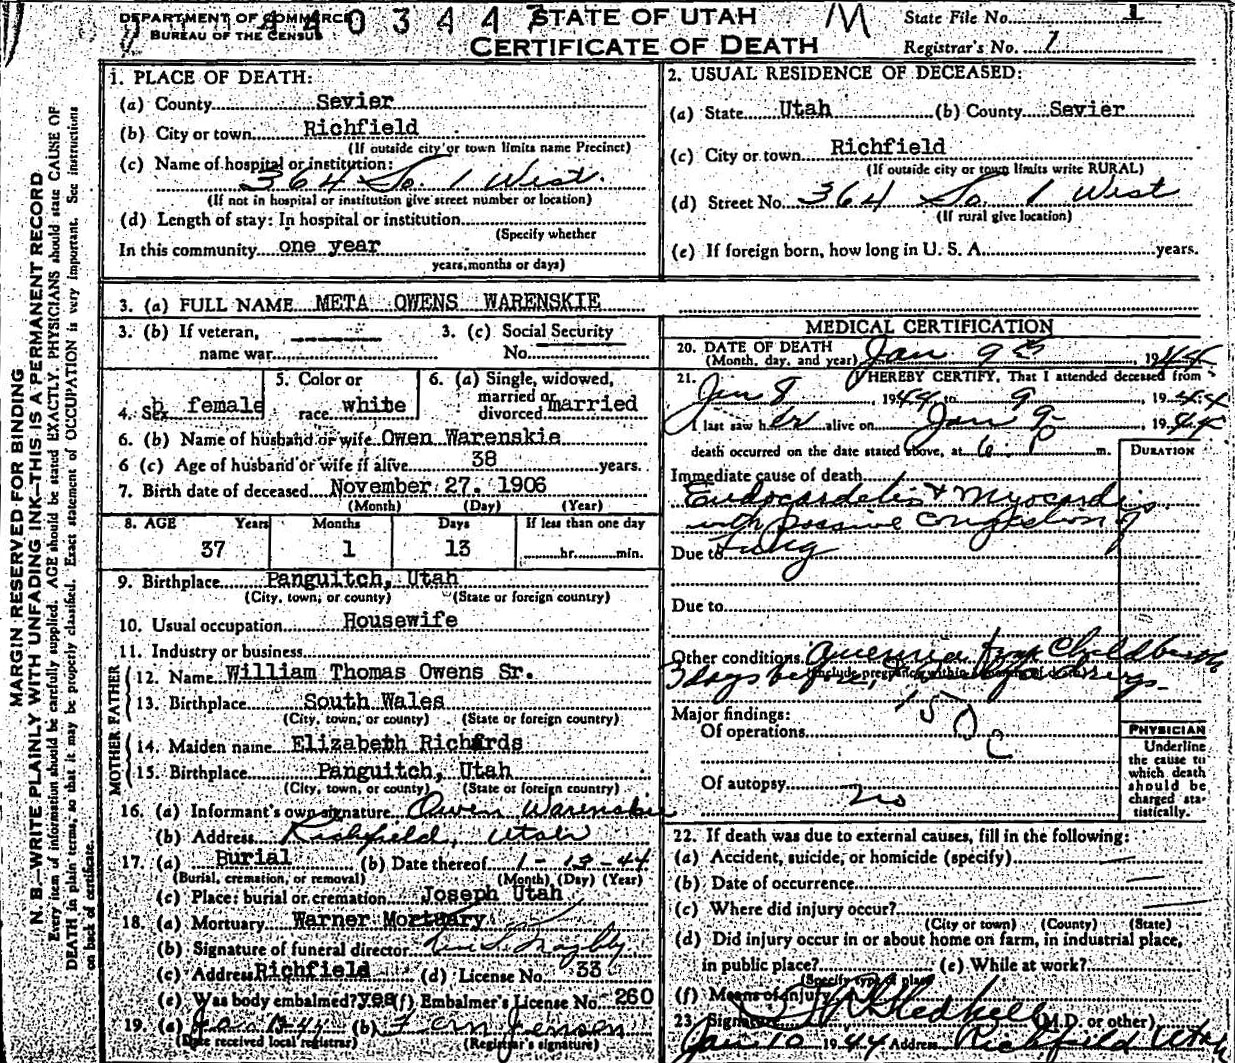 DEPARTMENT OF COMMERCE
BUREAU OF THE CENSUS
0 3 4 4
STATE OF UTAH
M
CERTIFICATE OF DEATH
State File No. 1
Registrar's No. 7
MARGIN RESERVED FOR BINDING
N. B.—WRITE PLAINLY WITH UNFADING INK—THIS IS A PERMANENT RECORD
Every item of information should be carefully supplied. AGE should be stated EXACTLY. PHYSICIANS should state CAUSE OF
DEATH in plain terms, so that it may be properly classified. Exact statement of OCCUPATION is very important. See instructions
on back of certificate.
1. PLACE OF DEATH:
(a) County Sevier
(b) City or town Richfield
(If outside city or town limits name Precinct)
(c) Name of hospital or institution:
364 So. 1 West.
(If not in hospital or institution give street number or location)
(d) Length of stay: In hospital or institution
(Specify whether
In this community one year
years, months or days)
2. USUAL RESIDENCE OF DECEASED:
(a) State Utah (b) County Sevier
(c) City or town Richfield
(If outside city or town limits write RURAL)
(d) Street No. 364 So. 1 West
(If rural give location)
(e) If foreign born, how long in U. S. A. years.
3. (a) FULL NAME META OWENS WARENSKIE
3. (b) If veteran, 3. (c) Social Security
name war No.
4. Sex female
5. Color or
race white
6. (a) Single, widowed,
married or
divorced married
6. (b) Name of husband or wife Owen Warenskie
6 (c) Age of husband or wife if alive 38 years.
7. Birth date of deceased November 27, 1906
(Month) (Day) (Year)
8. AGE Years Months Days If less than one day
37 1 13 hr. min.
9. Birthplace Panguitch, Utah
(City, town, or county) (State or foreign country)
10. Usual occupation Housewife
11. Industry or business
FATHER
12. Name William Thomas Owens Sr.
13. Birthplace South Wales
(City, town, or county) (State or foreign country)
MOTHER
14. Maiden name Elizabeth Richards
15. Birthplace Panguitch, Utah
(City, town, or county) (State or foreign country)
16. (a) Informant's own signature Owen Warenskie
(b) Address Richfield, Utah
17. (a) Burial (b) Date thereof 1-13-44
(Burial, cremation, or removal) (Month) (Day) (Year)
(c) Place: burial or cremation Joseph Utah
18. (a) Mortuary Warner Mortuary
(b) Signature of funeral director
(c) Address Richfield (d) License No. 33
(e) Was body embalmed? yes (f) Embalmer's License No. 260
19. (a) Jan 13-44 (b) Fern Jensen
(Date received local registrar) (Registrar's signature)
MEDICAL CERTIFICATION
20. DATE OF DEATH
(Month, day, and year) Jan 9th, 1944
21. I HEREBY CERTIFY, That I attended deceased from
Jan 8, 1944 to 9, 1944
I last saw her alive on Jan 9, 1944
death occurred on the date stated above, at 6 P m.
DURATION
Immediate cause of death
Endocarditis & Myocardi
with passive congestion of
Due to Lung
Due to
Other conditions from Childbirth
3 days before,
(Include pregnancy within
150c
Major findings:
Of operations
Of autopsy no
PHYSICIAN
Underline
the cause to
which death
should be
charged sta-
tistically.
22. If death was due to external causes, fill in the following:
(a) Accident, suicide, or homicide (specify)
(b) Date of occurrence
(c) Where did injury occur?
(City or town) (County) (State)
(d) Did injury occur in or about home on farm, in industrial place,
in public place? (e) While at work?
(Specify type of place)
(f) Means of injury
23. Signature (M.D. or other)
Jan 10 1944 Address Richfield Utah